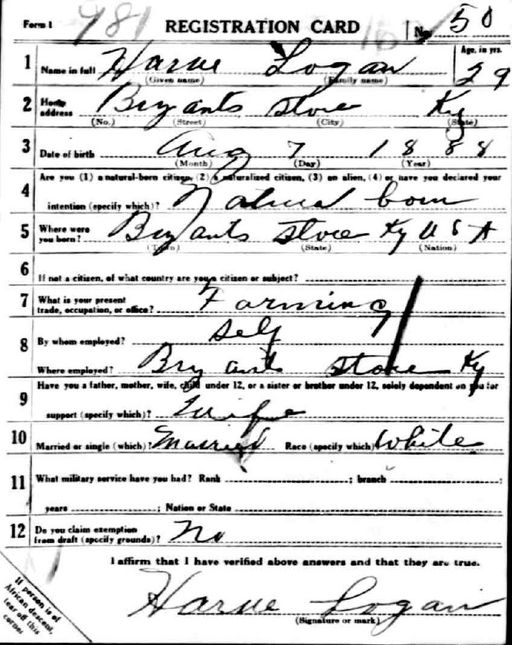 Form 1 981 REGISTRATION CARD No. 50
1 Name in full Harve Logan Age, in yrs. 29
(Given name) (Family name)
2 Home address Bryants Store Ky
(No.) (Street) (City) (State)
3 Date of birth Aug 7 1888
(Month) (Day) (Year)
4 Are you (1) a natural-born citizen, (2) a naturalized citizen, (3) an alien, (4) or have you declared your
intention (specify which)? Natural born
5 Where were you born? Bryants Store Ky U S A
(Town) (State) (Nation)
6 If not a citizen, of what country are you a citizen or subject?
7 What is your present trade, occupation, or office? Farming
8 By whom employed? Self
Where employed? Bryants Store Ky
9 Have you a father, mother, wife, child under 12, or a sister or brother under 12, solely dependent on you for
support (specify which)? Wife
10 Married or single (which)? Married Race (specify which) White
11 What military service have you had? Rank ; branch ;
years ; Nation or State
12 Do you claim exemption from draft (specify grounds)? No
I affirm that I have verified above answers and that they are true.
Harve Logan
(Signature or mark)
If person is of
African descent,
tear off this
corner